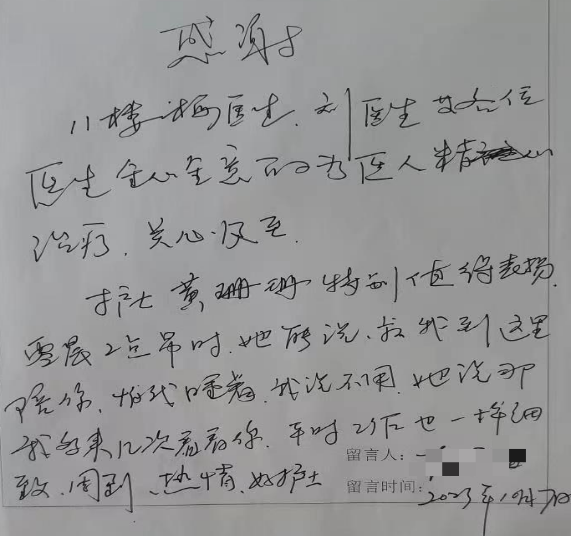 感谢
11楼梅医生、刘医生女各位
医生全心全意的为医人精心
治疗、关心·及至.
护士黄珊珊特别值得表扬.
零晨2点吊时.她听说.我到这里
陪你、怕我睡着.我说不用.她说那
我多来几次看看你.平时对后也一样细
致、周到、热情、好护士
留言人：
留言时间：2023年10月7日